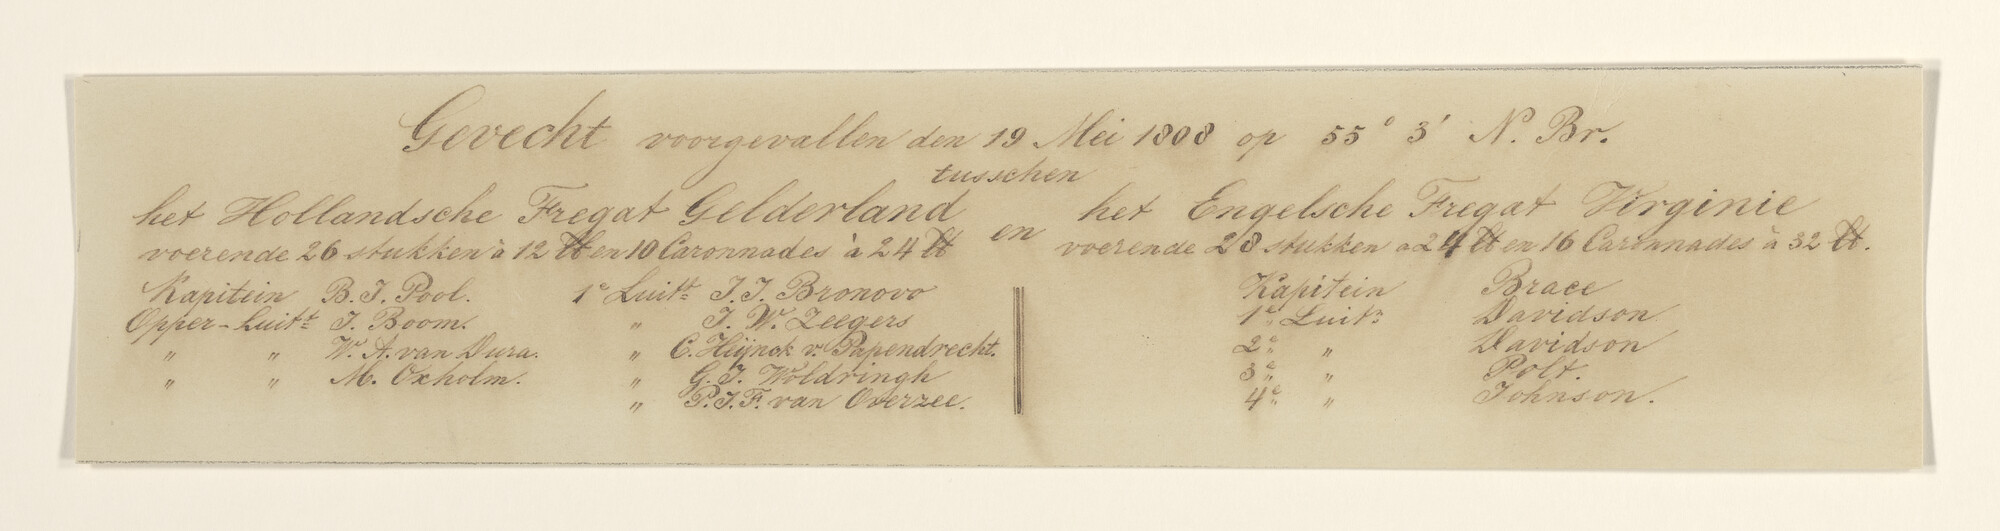 Gevecht voorgevallen den 19 Mei 1808 op 55° 3' N. Br.
tusschen
het Hollandsche Fregat Gelderland en het Engelsche Fregat Virginie
voerende 26 stukken à 12 ℔ en 10 Caronnades à 24 ℔
voerende 28 stukken a 24 ℔ en 16 Caronnades à 32 ℔.
Kapitein B. J. Pool. 1e Luitt: J. J. Bronovo
Opper-Luitt: J. Boom. " J. W. Zeegers
" " W. A. van Dura. " C. Heijnck v. Papendrecht.
" " M. Oxholm. " G. J. Woldringh
" P. J. F. van Overzee.
Kapitein Brace
1e Luitn Davidson
2e " Davidson
3e " Polt.
4e " Johnson.